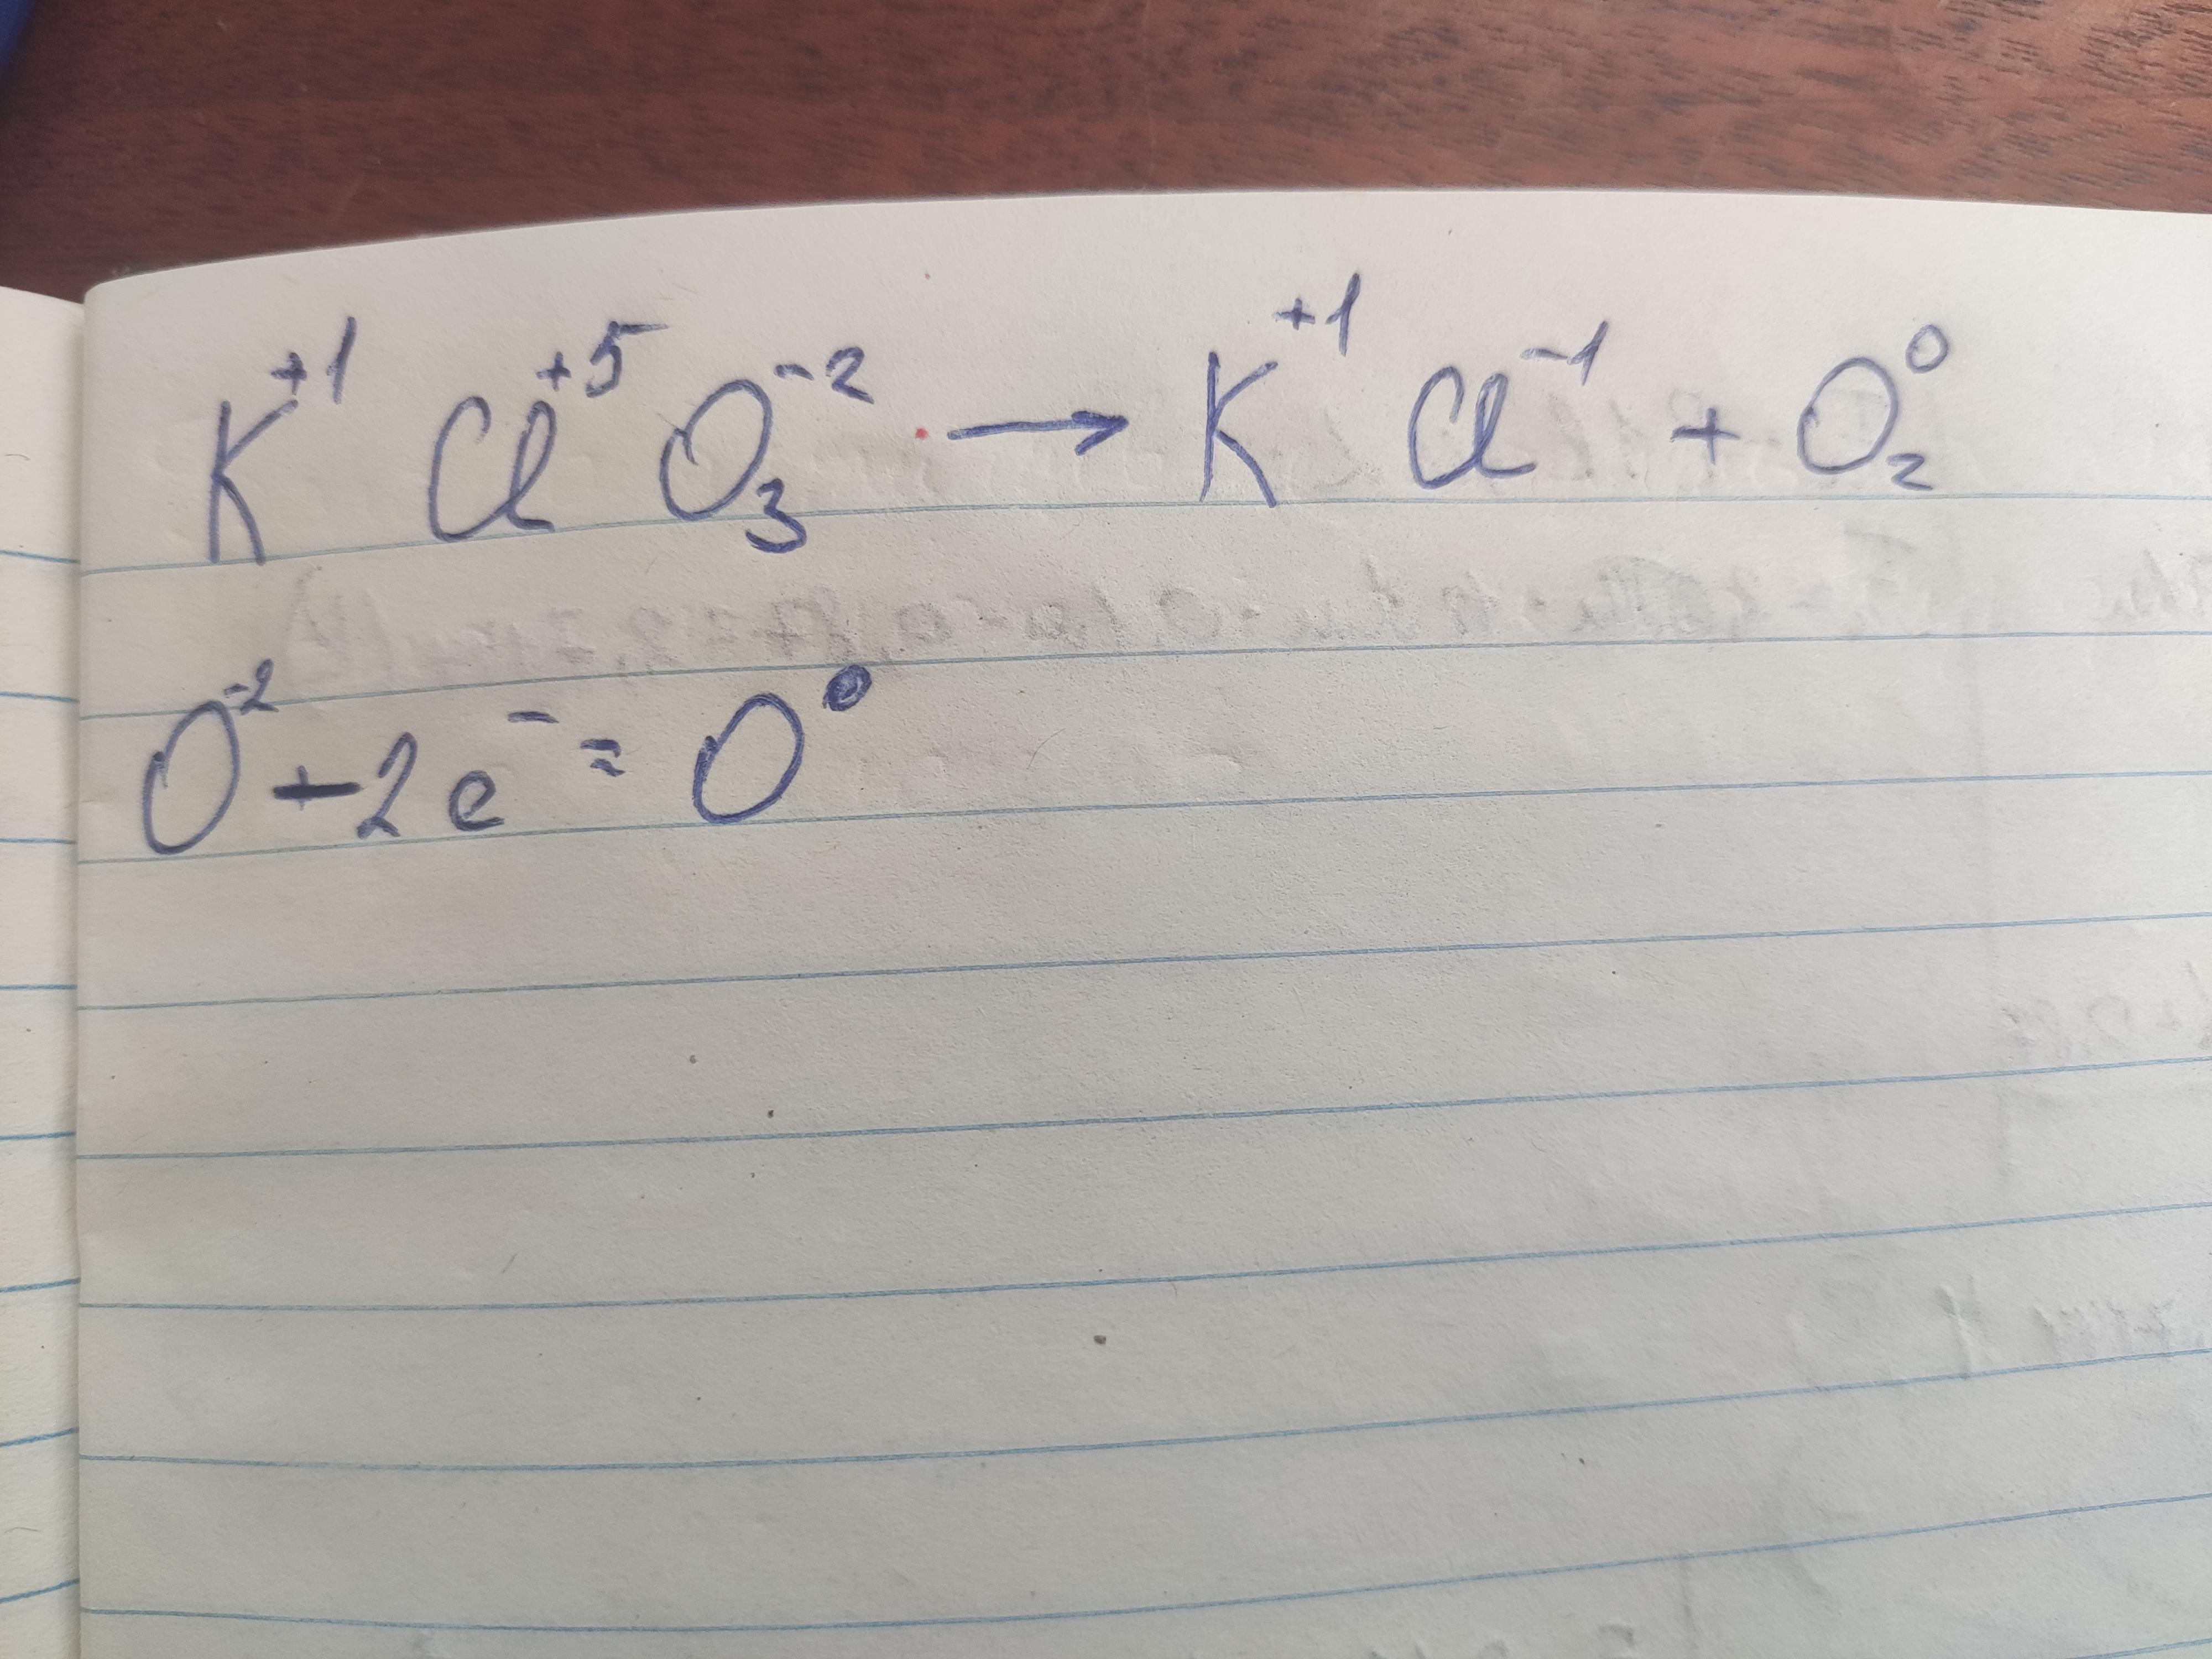 K⁺¹ Cl⁺⁵ O₃⁻² → K⁺¹ Cl⁻¹ + O₂⁰
O⁻² + 2e⁻ = O⁰